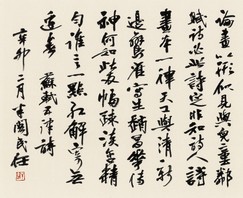 論畫以形似見與兒童鄰
賦詩必此詩定非知詩人詩
畫本一律天工與清新
邊鸞雀寫生趙昌花傳
神何如此兩幅疎淡含精
勻誰言一點紅解寄無
邊春 蘇軾五律詩
辛卯二月